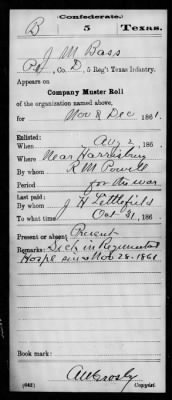 Confederate.
B 5 Texas.
J M Bass
Pvt, Co. D, 5 Reg't Texas Infantry.
Appears on
Company Muster Roll
of the organization named above,
for Nov & Dec 1861.
Enlisted:
When Aug 2, 186 .
Where Near Harrisburg
By whom R M Powell
Period for the war
Last paid:
By whom J H Littlefield
To what time Oct 31, 186 .
Present or absent Present
Remarks: Sick in Regimental
Hospl since Nov 28. 1861
Book mark:
AM Crosby
(642) Copyist.